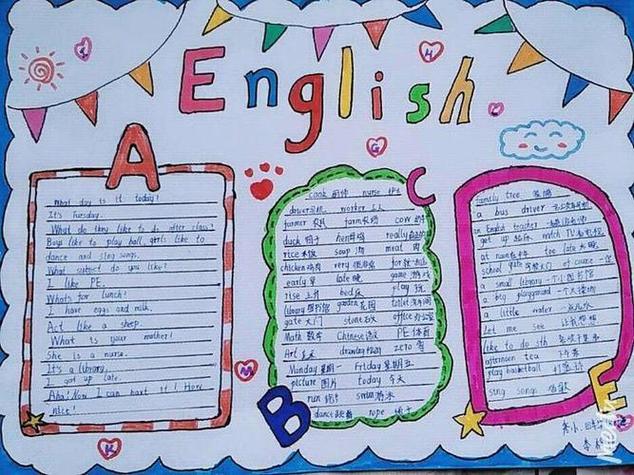 English
A
What day is it today?
It's Tuesday.
What do they like to do after class?
Boys like to play ball, girls like to
dance and sing songs.
What subject do you like?
I like PE.
Whats for lunch?
I have eggs and milk.
Act like a sheep.
What is your mother?
She is a nurse.
It's a library.
I got up late.
Aha! Now I can hart it! How
nice!
C
cook 厨师 nurse 护士
driver 司机 worker 工人
farmer 农民 farm 农场 cow 奶牛
duck 鸭子 hen 母鸡 really
rice 米饭 soup 汤 meat 肉
chicken 鸡肉 very for
early 早 late 晚 game 游戏
rise 上升 bed 床 play 玩
library 图书馆 garden 花园 toilet
gate 大门 stone 石头 office 办公室
Math 数学 Chinese 语文 PE 体育
Art zero 零
Monday 星期一 Friday 星期五
picture 图片 today 今天
run 跑步 swim 游泳
dance 跳舞 rope 绳子
B
family tree 家谱
a bus driver
an English teacher
get up 起床 watch TV 看电视
at noon 在中午 too late 太晚
school gate 学校大门 of course
a small library 一个小图书馆
a big playground 一个大操场
a little water 一点儿水
let me see 让我想想
like to do sth
afternoon tea 下午茶
play basketball 打篮球
sing songs 唱歌
E